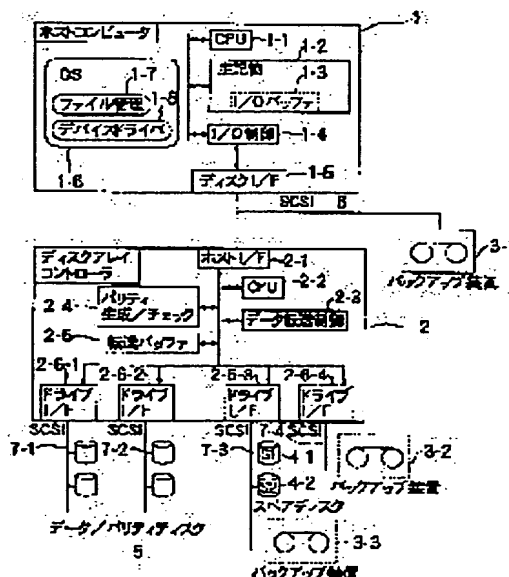 ホストコンピュータ
1
CPU
1-1
1-2
OS
1-7
主記憶
1-3
ファイル管理
1-8
I/Oバッファ
デバイスドライバ
I/O制御
1-4
1-6
ディスクI/F
1-5
SCSI 6
3-
バックアップ装置
ディスクアレイ
コントローラ
ホストI/F
2-1
CPU
2-2
2-4
パリティ
生成/チェック
2-3
データ転送制御
2
2-5
転送バッファ
2-6-1
2-6-2
2-6-3
2-6-4
ドライブ
I/F
ドライブ
I/F
ドライブ
I/F
ドライブ
I/F
SCSI
SCSI
SCSI
7-4
SCSI
7-1
7-2
7-3
4-1
3-2
4-2
バックアップ装置
スペアディスク
データ/パリティディスク
5
3-3
バックアップ装置